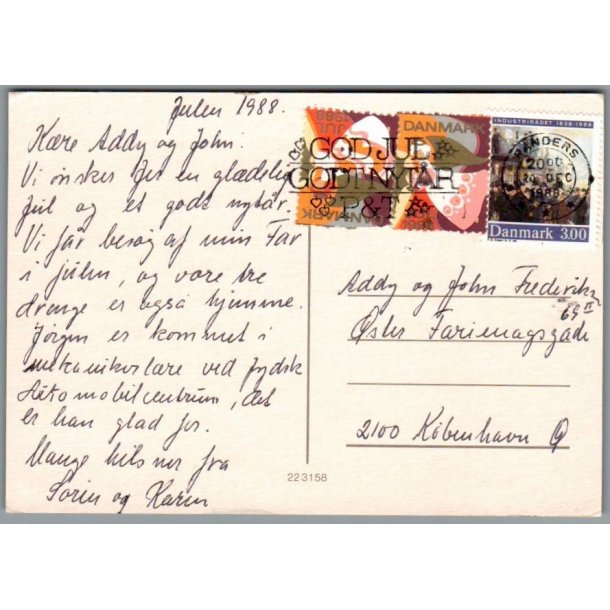 Julen 1988.
Kære Addy og John.
Vi ønsker Jer en glædelig
jul og et godt nytår.
Vi får besøg af min Far
i julen, og vore tre
drenge er også hjemme.
Jørgen er kommet i
mekanikerlære ved Jydsk
Automobilcentrum, det
er han glad for.
Mange hilsner fra
Søren og Karen
JUL 1988
DANMARK
GOD JUL
GODT NYTÅR
P&T
DANMARK
1988
INDUSTRIRÅDET 1838-1988
RANDERS
DEC
1988
Danmark 3.00
Addy og John Frederiksen
69 II
Øster Farimagsgade
2100 København Ø
223158